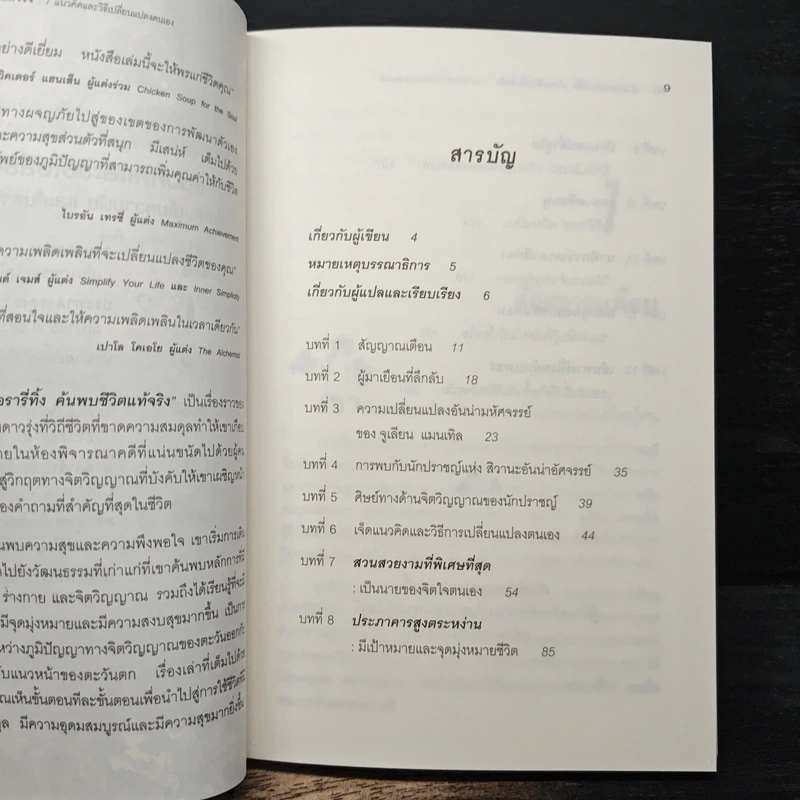 แนวคิดและวิธีเปลี่ยนแปลงตนเอง
อย่างดีเยี่ยม หนังสือเล่มนี้จะให้พรแก่ชีวิตคุณ"
วิคเตอร์ แฮนเส็น ผู้แต่งร่วม Chicken Soup for the Soul
ทางผจญภัยไปสู่ของเขตของการพัฒนาตัวเอง
ะความสุขส่วนตัวที่สนุก มีเสน่ห์ เต็มไปด้วย
พย์ของภูมิปัญญาที่สามารถเพิ่มคุณค่าให้กับชีวิต
ไบรอัน เทรซี่ ผู้แต่ง Maximum Achievement
ความเพลิดเพลินที่จะเปลี่ยนแปลงชีวิตของคุณ"
ต์ เจมส์ ผู้แต่ง Simplify Your Life และ Inner Simplicity
ที่สอนใจและให้ความเพลิดเพลินในเวลาเดียวกัน"
เปาโล โคเอโย ผู้แต่ง The Alchemist
อรารี่ทิ้ง ค้นพบชีวิตแท้จริง" เป็นเรื่องราวของ
ดาวรุ่งที่วิถีชีวิตที่ขาดความสมดุลทำให้เขาเกือบ
ายในห้องพิจารณาคดีที่แน่นขนัดไปด้วยผู้คน
สู่วิกฤตทางจิตวิญญาณที่บังคับให้เขาเผชิญหน้า
องคำถามที่สำคัญที่สุดในชีวิต
นพบความสุขและความพึงพอใจ เขาเริ่มการเดิน
ไปยังวัฒนธรรมที่เก่าแก่ที่เขาค้นพบหลักการที่มี
ร่างกาย และจิตวิญญาณ รวมถึงได้เรียนรู้ที่จะมี
มีจุดมุ่งหมายและมีความสงบสุขมากขึ้น เป็นการ
หว่างภูมิปัญญาทางจิตวิญญาณของตะวันออกกับ
ับแนวหน้าของตะวันตก เรื่องเล่าที่เต็มไปด้วย
ณเห็นขั้นตอนทีละขั้นตอนเพื่อนำไปสู่การใช้ชีวิตที่มี
ุล มีความอุดมสมบูรณ์และมีความสุขมากยิ่งขึ้น
9
สารบัญ
เกี่ยวกับผู้เขียน 4
หมายเหตุบรรณาธิการ 5
เกี่ยวกับผู้แปลและเรียบเรียง 6
บทที่ 1 สัญญาณเตือน 11
บทที่ 2 ผู้มาเยือนที่ลึกลับ 18
บทที่ 3 ความเปลี่ยนแปลงอันน่ามหัศจรรย์
ของ จูเลียน แมนเทิล 23
บทที่ 4 การพบกับนักปราชญ์แห่ง สิวานะอันน่าอัศจรรย์ 35
บทที่ 5 ศิษย์ทางด้านจิตวิญญาณของนักปราชญ์ 39
บทที่ 6 เจ็ดแนวคิดและวิธีการเปลี่ยนแปลงตนเอง 44
บทที่ 7 สวนสวยงามที่พิเศษที่สุด
: เป็นนายของจิตใจตนเอง 54
บทที่ 8 ประภาคารสูงตระหง่าน
: มีเป้าหมายและจุดมุ่งหมายชีวิต 85